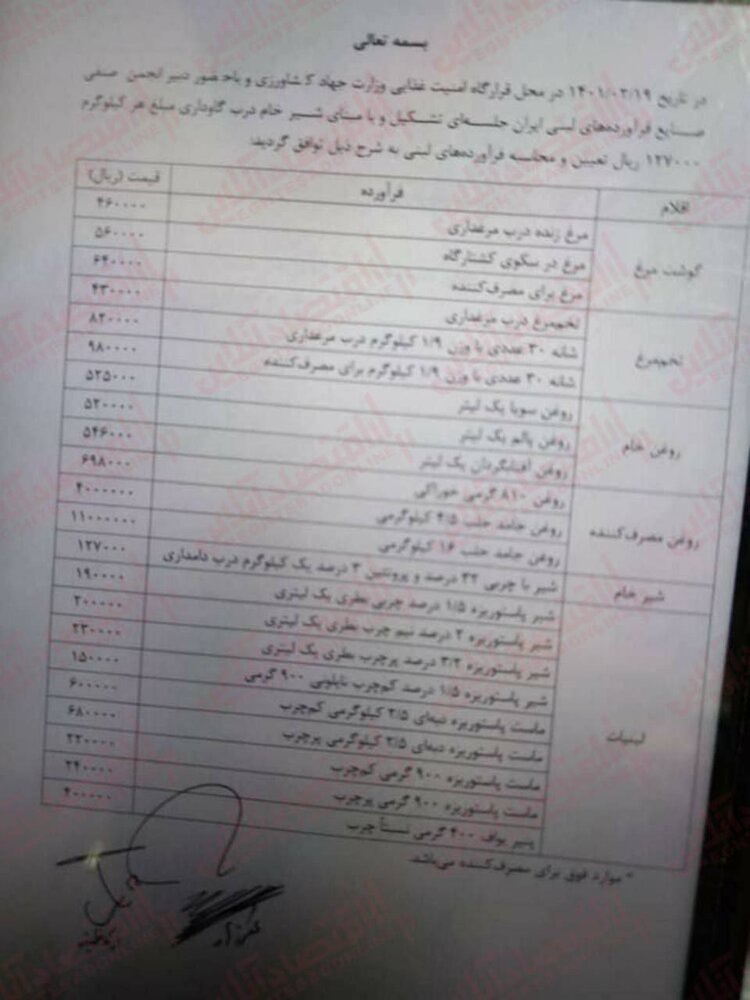 بسمه تعالی
در تاریخ ۱۴۰۱/۰۲/۱۹ در محل قرارگاه امنیت غذایی وزارت جهاد کشاورزی و باحضور دبیر انجمن صنفی
صنایع فرآورده‌های لبنی ایران جلسه‌ای تشکیل و با مبنای شیر خام درب گاوداری مبلغ هر کیلوگرم
۱۲۷۰۰۰ ریال تعیین و محاسبه فرآورده‌های لبنی به شرح ذیل توافق گردید:
اقلام فرآورده قیمت (ریال)
گوشت مرغ
مرغ زنده درب مرغداری ۴۶۰۰۰۰
مرغ در سکوی کشتارگاه ۵۶۰۰۰۰
مرغ برای مصرف‌کننده ۶۴۰۰۰۰
تخم‌مرغ
تخم‌مرغ درب مرغداری ۴۳۰۰۰۰
شانه ۳۰ عددی با وزن ۱/۹ کیلوگرم درب مرغداری ۸۲۰۰۰۰
شانه ۳۰ عددی با وزن ۱/۹ کیلوگرم برای مصرف‌کننده ۹۸۰۰۰۰
روغن خام
روغن سویا یک لیتر ۵۲۵۰۰۰
روغن پالم یک لیتر ۵۲۰۰۰۰
روغن آفتابگردان یک لیتر ۵۴۶۰۰۰
روغن مصرف‌کننده
روغن ۸۱۰ گرمی خوراکی ۶۹۸۰۰۰
روغن جامد حلب ۴/۵ کیلوگرمی ۴۰۰۰۰۰۰
روغن جامد حلب ۱۶ کیلوگرمی ۱۱۰۰۰۰۰۰
شیر خام
شیر با چربی ۳۲ درصد و پروتئین ۳ درصد یک کیلوگرم درب دامداری ۱۲۷۰۰۰
لبنیات
شیر پاستوریزه ۱/۵ درصد چربی بطری یک لیتری ۱۹۰۰۰۰
شیر پاستوریزه ۲ درصد نیم چرب بطری یک لیتری ۲۰۰۰۰۰
شیر پاستوریزه ۳/۲ درصد پرچرب بطری یک لیتری ۲۳۰۰۰۰
شیر پاستوریزه ۱/۵ درصد کم‌چرب نایلونی ۹۰۰ گرمی ۱۵۰۰۰۰
ماست پاستوریزه دبه‌ای ۲/۵ کیلوگرمی کم‌چرب ۶۰۰۰۰۰
ماست پاستوریزه دبه‌ای ۲/۵ کیلوگرمی پرچرب ۶۸۰۰۰۰
ماست پاستوریزه ۹۰۰ گرمی کم‌چرب ۲۲۰۰۰۰
ماست پاستوریزه ۹۰۰ گرمی پرچرب ۲۴۰۰۰۰
پنیر یواف ۴۰۰ گرمی نسبتاً چرب ۴۰۰۰۰۰
* موارد فوق برای مصرف‌کننده می‌باشد.
اقتصادآنلاین
EGHTESADONLINE